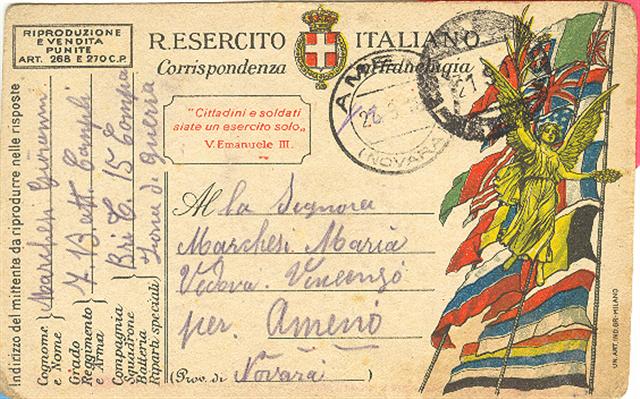 RIPRODUZIONE
E VENDITA
PUNITE
ART. 268 E 270 C.P.
R. ESERCITO ITALIANO
Corrispondenza in franchigia
"Cittadini e soldati
siate un esercito solo„
V. Emanuele III.
AME
(NOVARA)
27
Al la Signora
Marchesi Maria
Vedova Vincenzo
per Ameno
(Prov. di Novara)
Indirizzo del mittente da riprodurre nelle risposte
Cognome e Nome Marchesi Giovanni
Grado Reggimento e Arma 7
Compagnia Squadrone Batteria Riparti speciali 15 Compa
Zona di guerra
UN. ART. IND. BR. MILANO